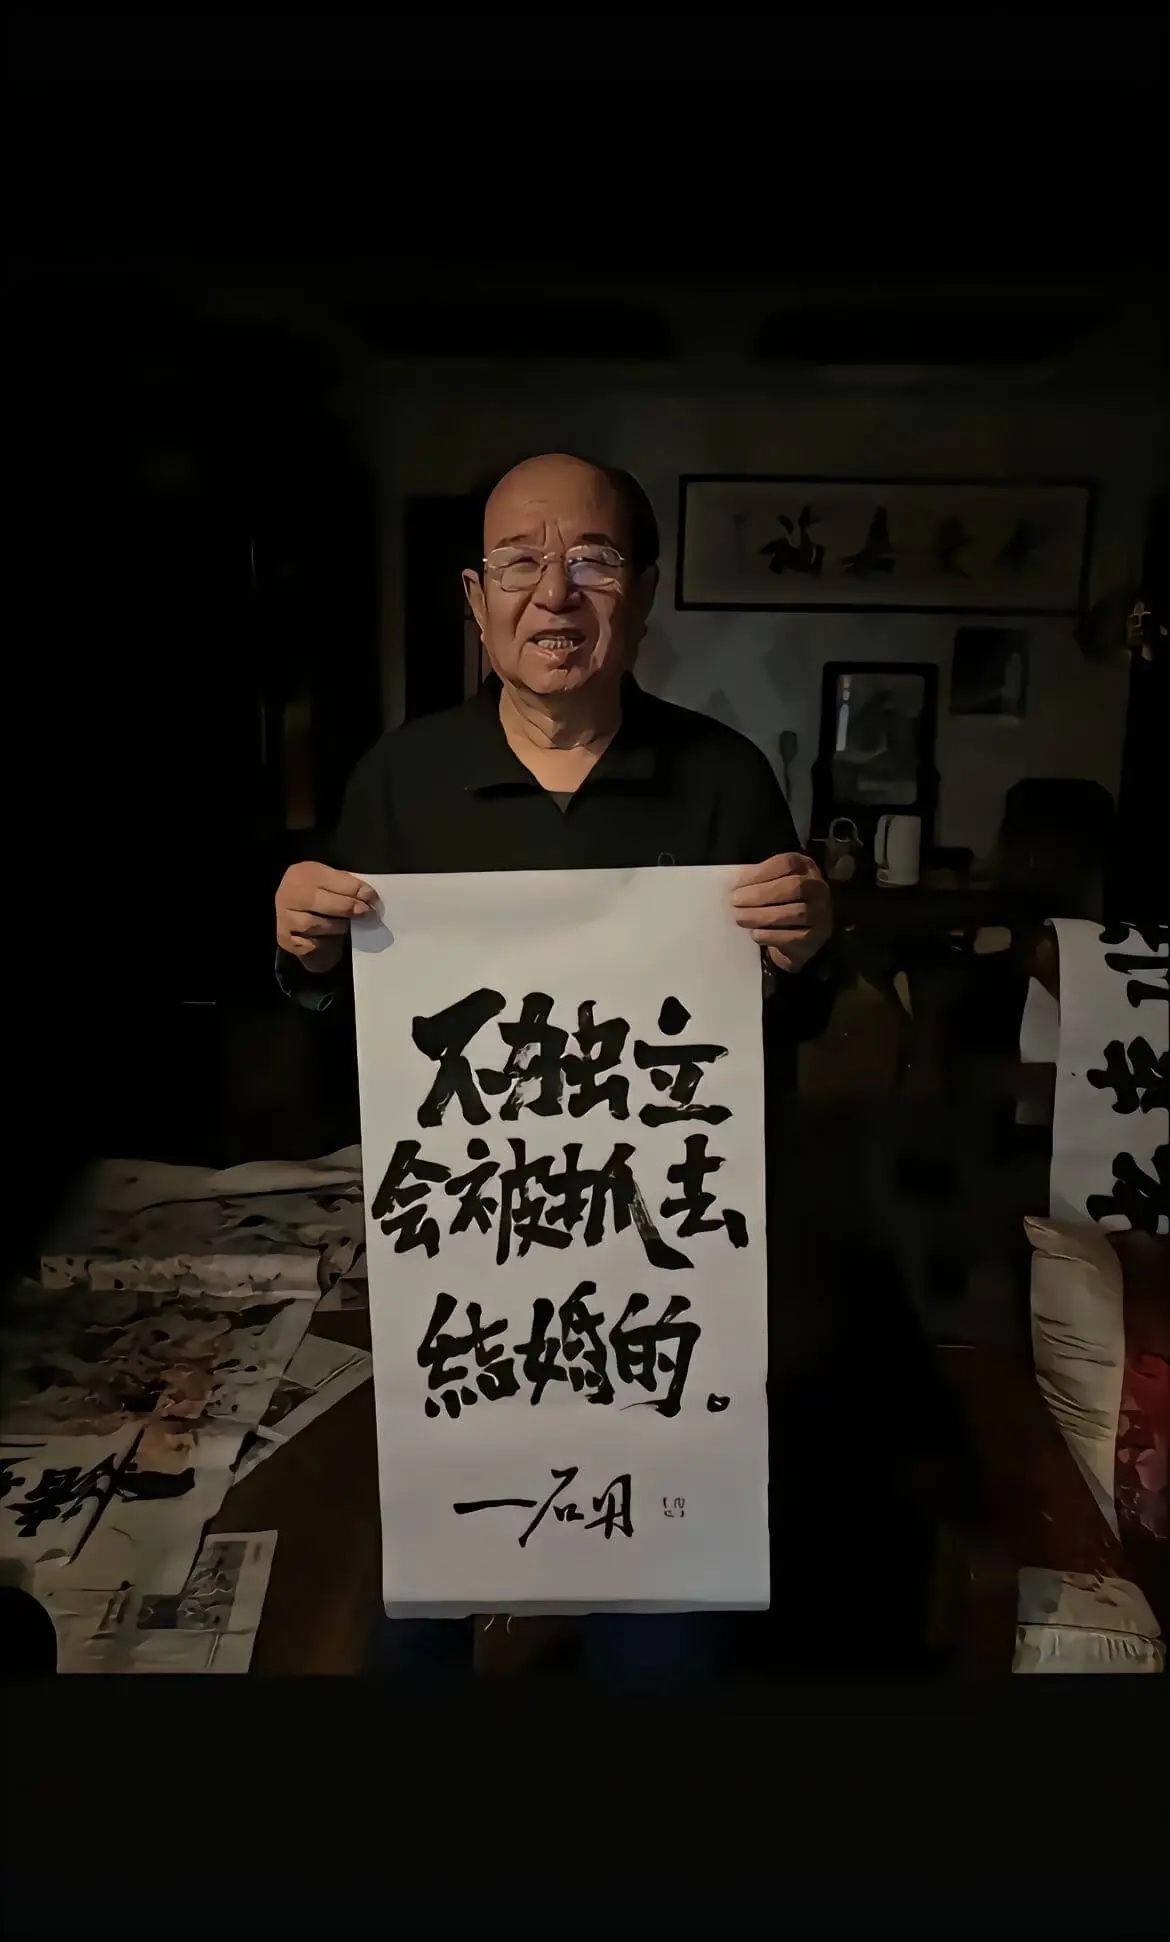 不独立
会被抓去
結婚的。
一石明